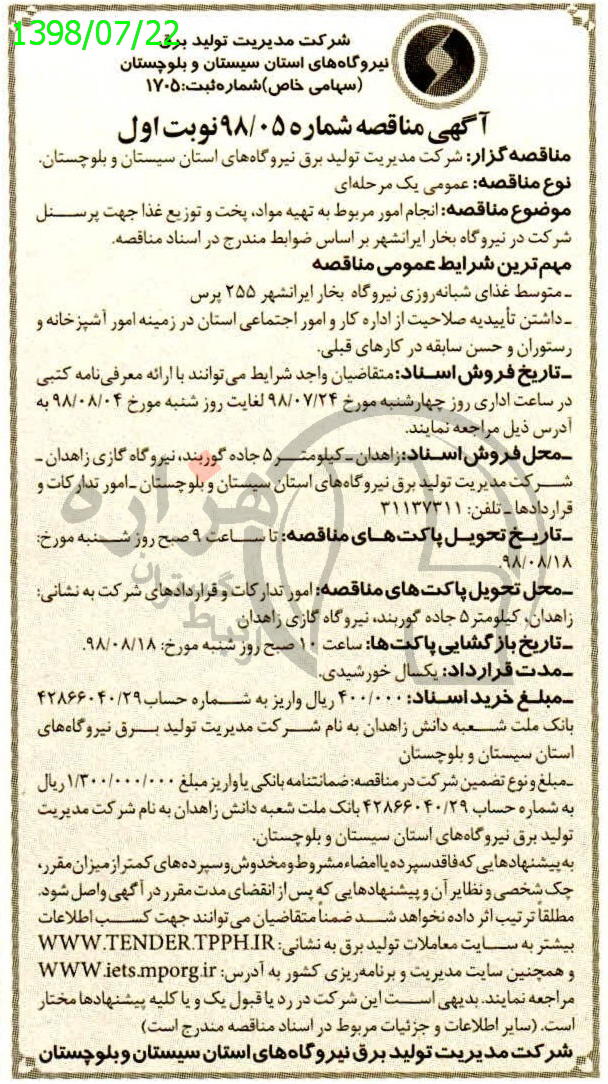 1398/07/22
شرکت مدیریت تولید برق
نیروگاه‌های استان سیستان و بلوچستان
(سهامی خاص)شماره ثبت:۱۷۰۵
آگهی مناقصه شماره ۹۸/۰۵ نوبت اول
مناقصه گزار: شرکت مدیریت تولید برق نیروگاه‌های استان سیستان و بلوچستان.
نوع مناقصه: عمومی یک مرحله‌ای
موضوع مناقصه: انجام امور مربوط به تهیه مواد، پخت و توزیع غذا جهت پرسنل
شرکت در نیروگاه بخار ایرانشهر بر اساس ضوابط مندرج در اسناد مناقصه.
مهم‌ترین شرایط عمومی مناقصه
ـ متوسط غذای شبانه‌روزی نیروگاه بخار ایرانشهر ۲۵۵ پرس
ـ داشتن تأییدیه صلاحیت از اداره کار و امور اجتماعی استان در زمینه امور آشپزخانه و
رستوران و حسن سابقه در کارهای قبلی.
ـ تاریخ فروش اسناد: متقاضیان واجد شرایط می‌توانند با ارائه معرفی‌نامه کتبی
در ساعت اداری روز چهارشنبه مورخ ۹۸/۰۷/۲۴ لغایت روز شنبه مورخ ۹۸/۰۸/۰۴ به
آدرس ذیل مراجعه نمایند.
ـ محل فروش اسناد: زاهدان ـ کیلومتر ۵ جاده گوربند، نیروگاه گازی زاهدان ـ
شرکت مدیریت تولید برق نیروگاه‌های استان سیستان و بلوچستان ـ امور تدارکات و
قراردادها ـ تلفن: ۳۱۱۳۷۳۱۱
ـ تاریخ تحویل پاکت‌های مناقصه: تا ساعت ۹ صبح روز شنبه مورخ:
۹۸/۰۸/۱۸.
ـ محل تحویل پاکت‌های مناقصه: امور تدارکات و قراردادهای شرکت به نشانی:
زاهدان، کیلومتر ۵ جاده گوربند، نیروگاه گازی زاهدان
ـ تاریخ بازگشایی پاکت‌ها: ساعت ۱۰ صبح روز شنبه مورخ: ۹۸/۰۸/۱۸.
ـ مدت قرارداد: یکسال خورشیدی.
ـ مبلغ خرید اسناد: ۴۰۰/۰۰۰ ریال واریز به شماره حساب ۴۲۸۶۶۰۴۰/۲۹
بانک ملت شعبه دانش زاهدان به نام شرکت مدیریت تولید برق نیروگاه‌های
استان سیستان و بلوچستان
ـ مبلغ و نوع تضمین شرکت در مناقصه: ضمانتنامه بانکی یا واریز مبلغ ۱/۳۰۰/۰۰۰/۰۰۰ ریال
به شماره حساب ۴۲۸۶۶۰۴۰/۲۹ بانک ملت شعبه دانش زاهدان به نام شرکت مدیریت
تولید برق نیروگاه‌های استان سیستان و بلوچستان.
به پیشنهادهایی که فاقد سپرده یا امضاء مشروط و مخدوش و سپرده‌های کمتر از میزان مقرر،
چک شخصی و نظایر آن و پیشنهادهایی که پس از انقضای مدت مقرر در آگهی واصل شود.
مطلقاً ترتیب اثر داده نخواهد شد ضمناً متقاضیان می‌توانند جهت کسب اطلاعات
بیشتر به سایت معاملات تولید برق به نشانی: WWW.TENDER.TPPH.IR
و همچنین سایت مدیریت و برنامه‌ریزی کشور به آدرس: WWW.iets.mporg.ir
مراجعه نمایند. بدیهی است این شرکت در رد یا قبول یک و یا کلیه پیشنهادها مختار
است. (سایر اطلاعات و جزئیات مربوط در اسناد مناقصه مندرج است)
شرکت مدیریت تولید برق نیروگاه‌های استان سیستان و بلوچستان
هزاره